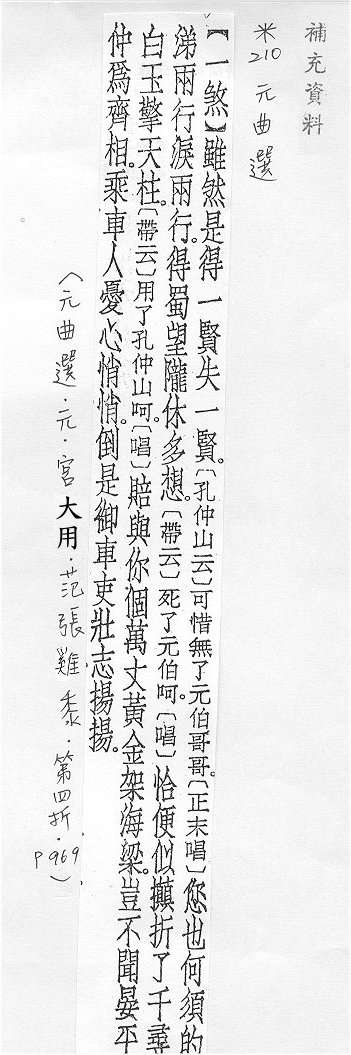 補充資料
米210 元曲選
【一煞】雖然是得一賢失一賢。〔孔仲山云〕可惜無了元伯哥哥。〔正末唱〕您也何須的
涕兩行淚兩行。得蜀望隴休多想。〔帶云〕死了元伯呵。〔唱〕恰便似攧折了千尋
白玉擎天柱。〔帶云〕用了孔仲山呵。〔唱〕賠與你個萬丈黃金架海梁。豈不聞晏平
仲爲齊相。乘車人憂心悄悄。倒是御車吏壯志揚揚。
(元曲選.元.宮大用.范張雞黍.第四折.P969)